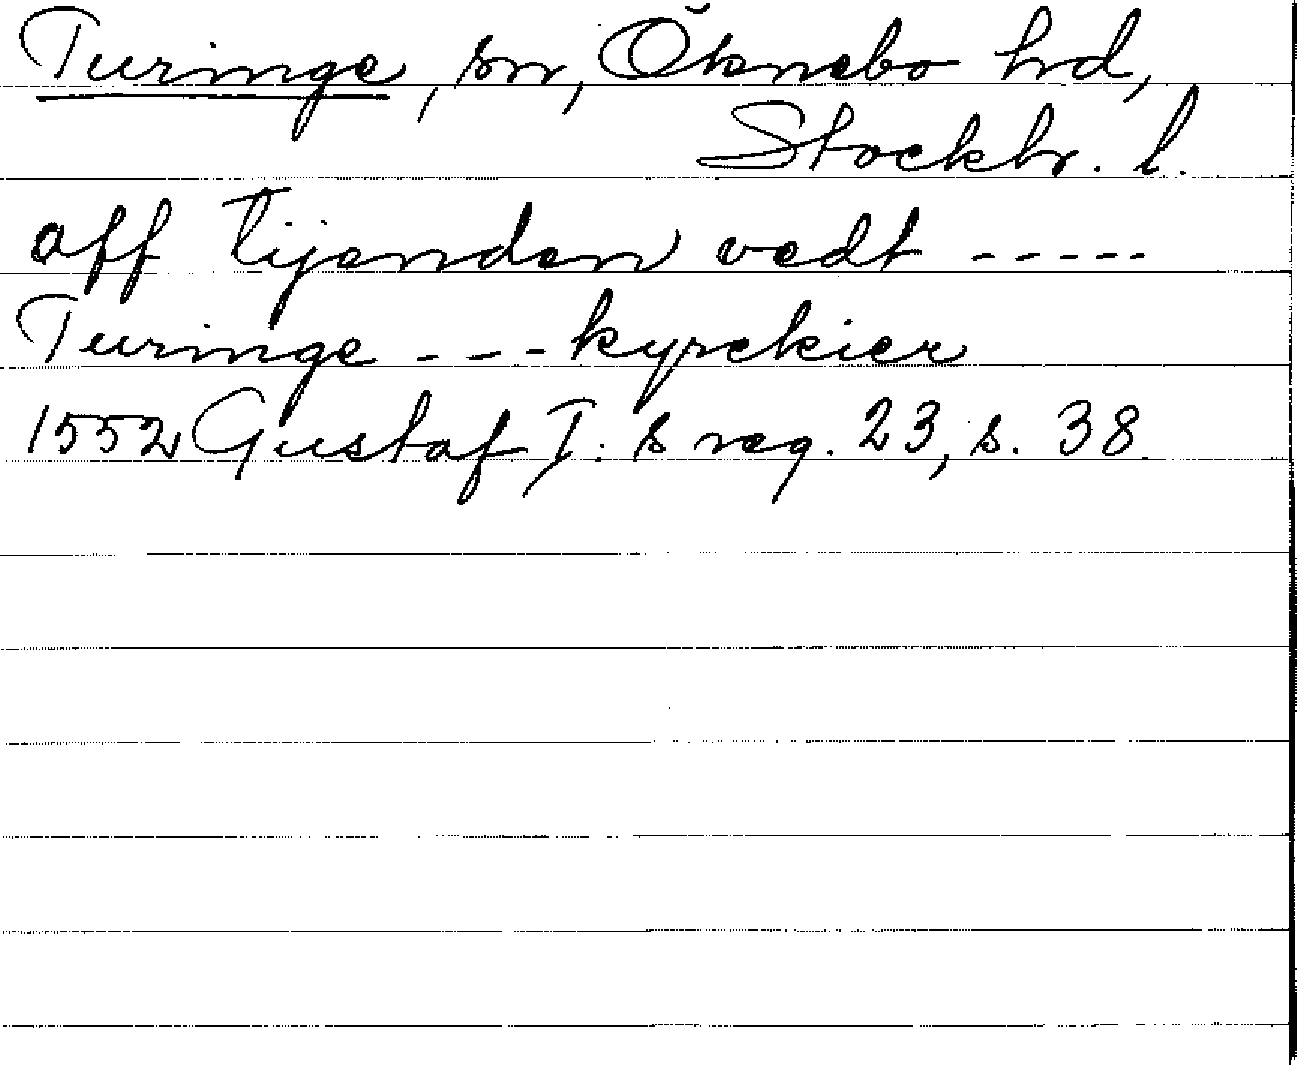 Turinge, sn, Öknebo hd,
Stockh. l.
aff tijenden vedt -----
Turinge --- kyrckier
1552 Gustaf I:s reg. 23, s. 38.